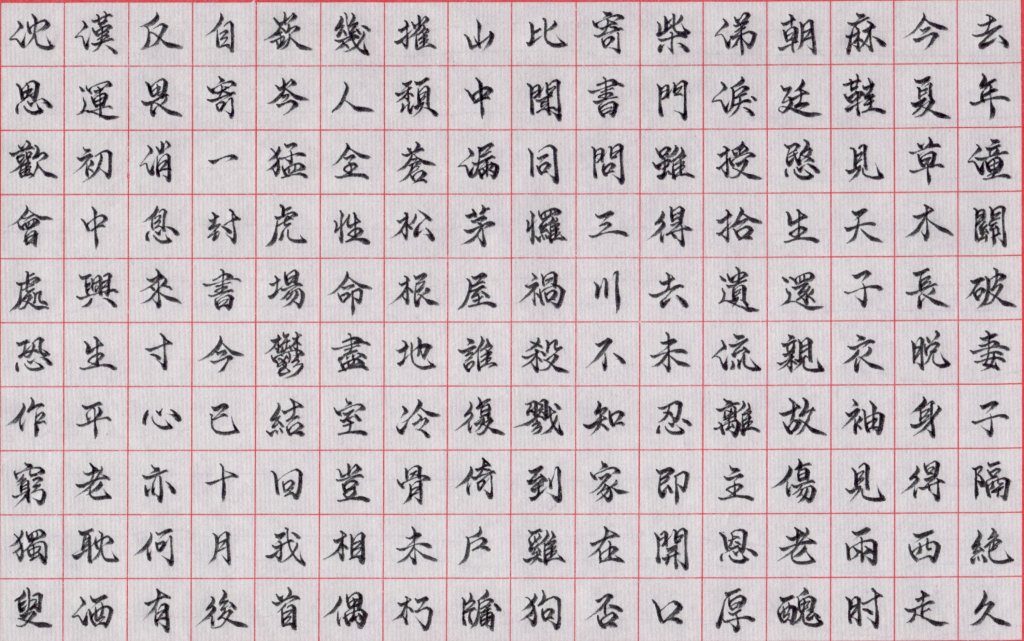 去年潼關破妻子隔絕久
今夏草木長脫身得西走
麻鞋見天子衣袖見兩肘
朝廷愍生還親故傷老醜
涕淚授拾遺流離主恩厚
柴門雖得去未忍即開口
寄書問三川不知家在否
比聞同罹禍殺戮到雞狗
山中漏茅屋誰復倚戶牖
摧頹蒼松根地冷骨未朽
幾人全性命盡室豈相偶
嶔岑猛虎場鬱結回我首
自寄一封書今已十月後
反畏消息來寸心亦何有
漢運初中興生平老耽酒
沈思歡會處恐作窮獨叟